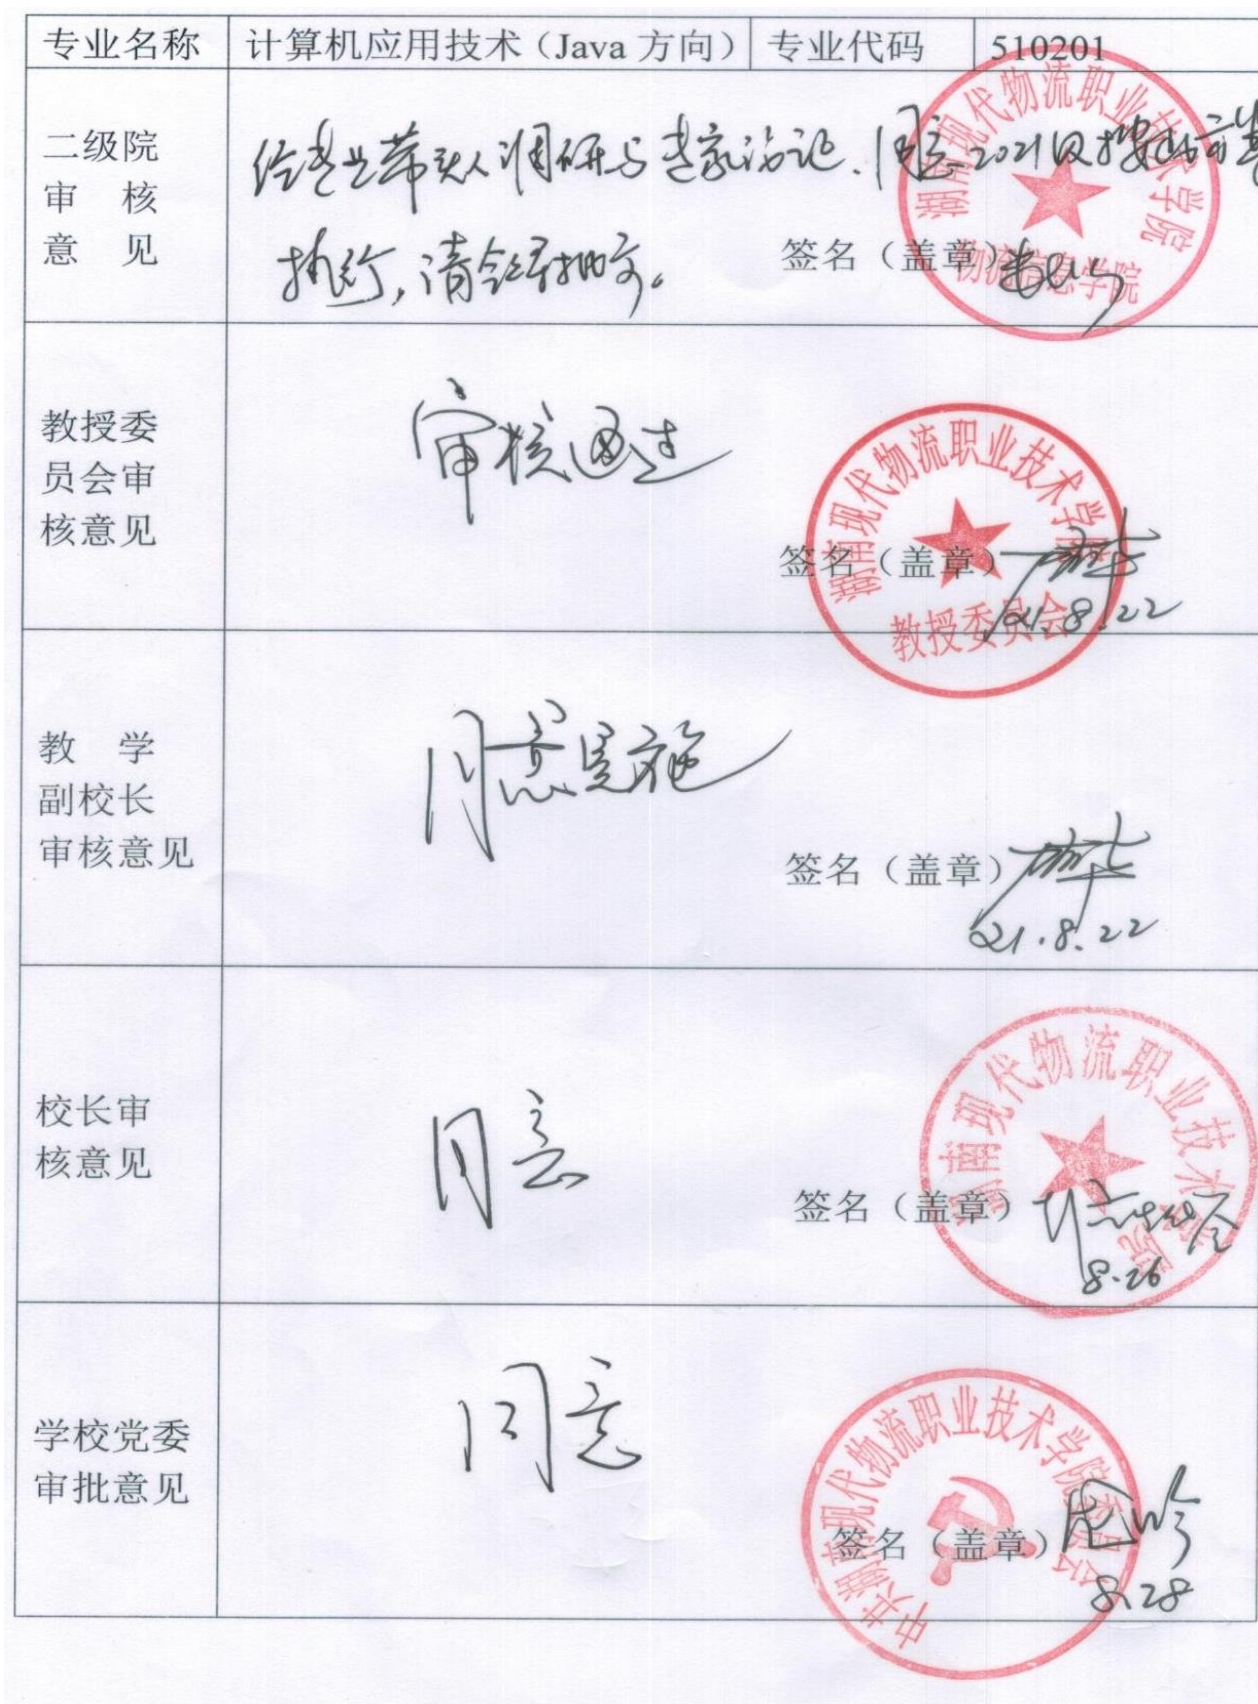 专业名称 计算机应用技术（Java 方向） 专业代码 510201
二级院
审 核
意 见
经专业带头人调研与专家论证、同意2021级按
执行，请领导批文。
签名（盖章）
湖南现代物流职业技术学院
物流信息学院
教授委
员会审
核意见
审核通过
签名（盖章）
21.8.22
湖南现代物流职业技术学院
教授委员会
教 学
副校长
审核意见
同意实施
签名（盖章）
21.8.22
校长审
核意见
同意
签名（盖章）
8.26
湖南现代物流职业技术学院
学校党委
审批意见
同意
签名（盖章）
8.28
中共湖南现代物流职业技术学院委员会